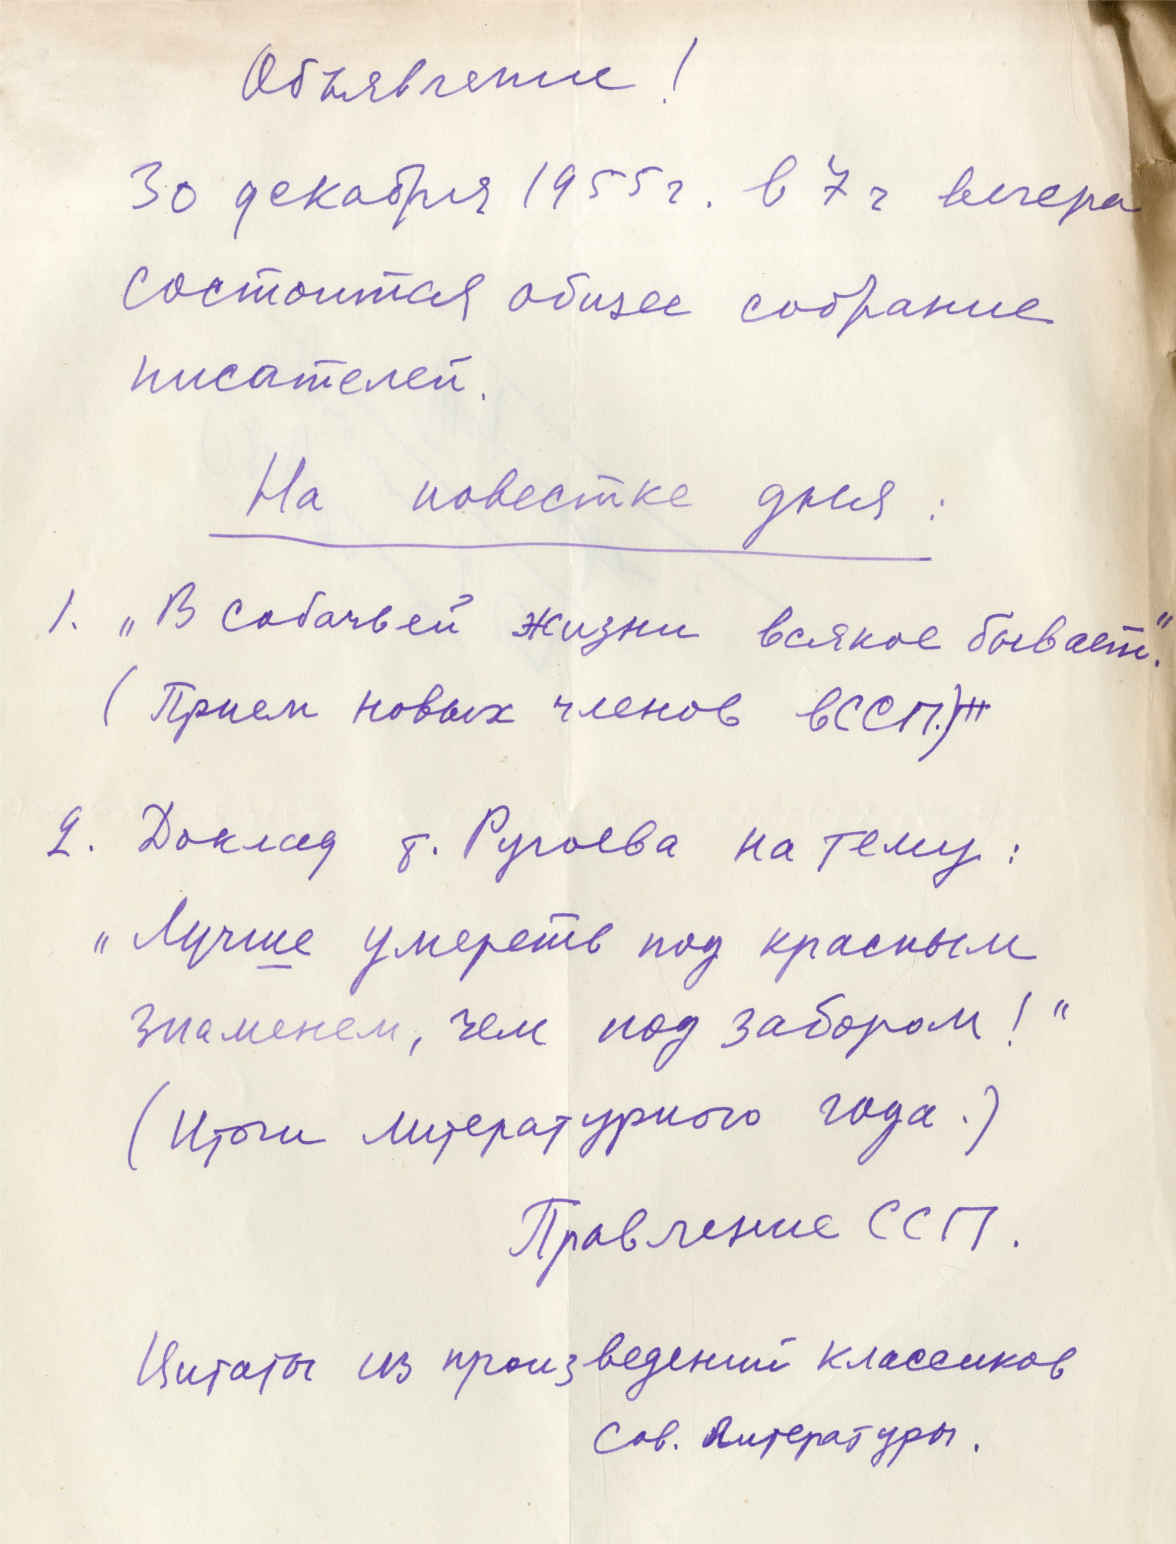 Объявление!
30 декабря 1955 г. в 7 ч вечера
состоится общее собрание
писателей.
На повестке дня:
1. „В собачьей жизни всякое бывает."
(Прием новых членов в ССП.)
2. Доклад т. Ругоева на тему:
„Лучше умереть под красным
знаменем, чем под забором!"
(Итоги литературного года.)
Правление ССП.
Цитаты из произведений классиков
сов. литературы.